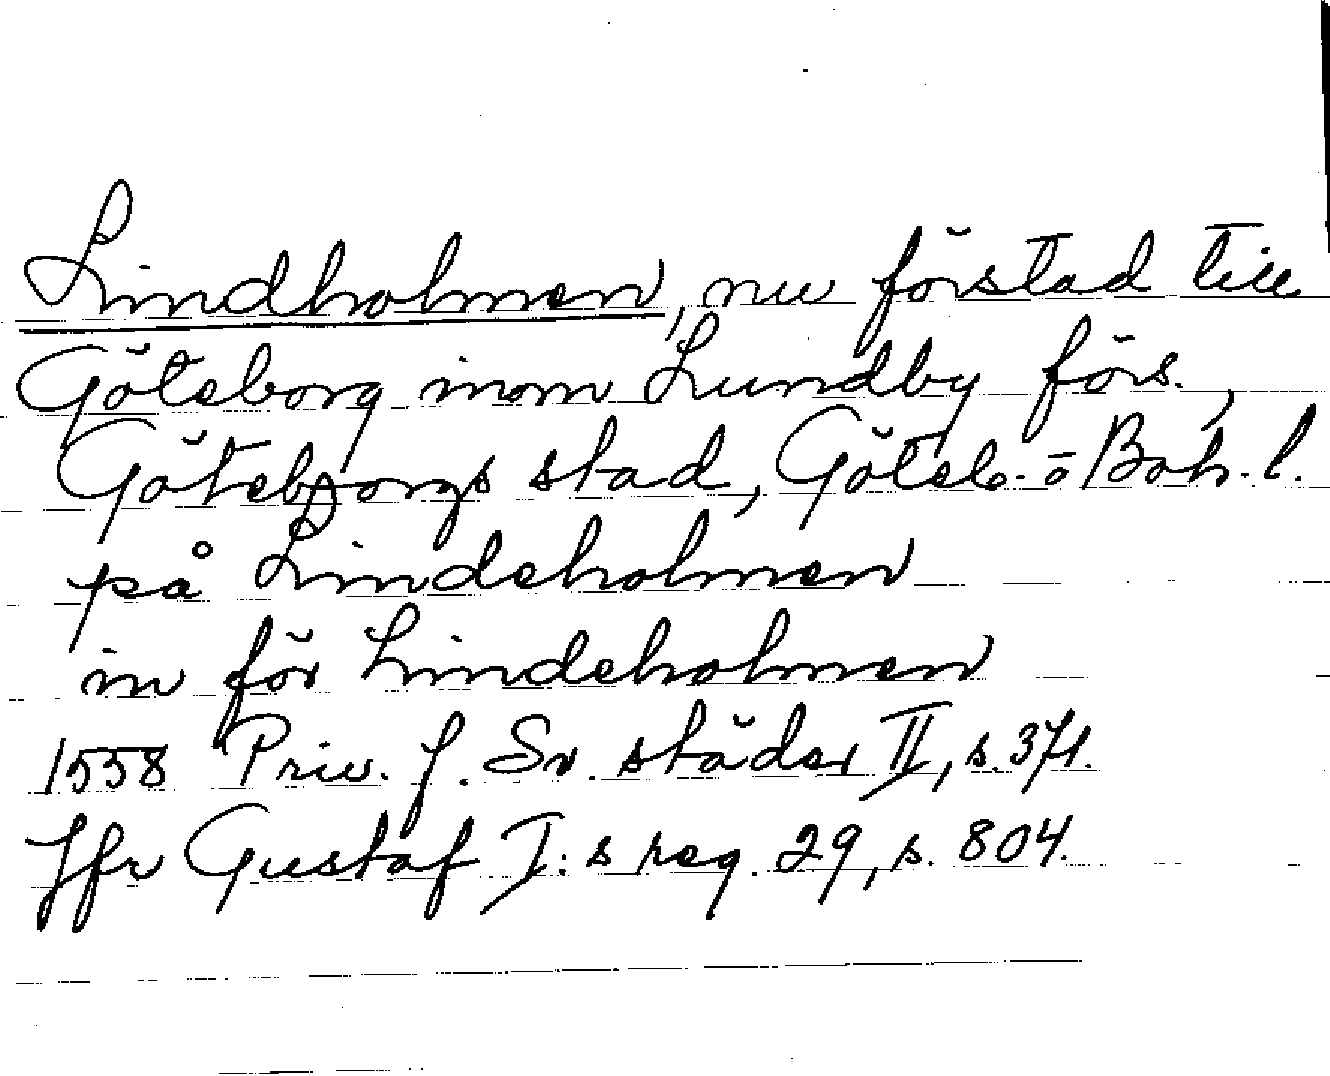 Lindholmen, nu förstad till
Göteborg inom Lundby förs.,
Göteborgs stad, Göteb. o Boh. l.
på Lindeholmen
in för Lindeholmen
1558 Priv. f. Sv. städer II, s. 371.
Jfr Gustaf I:s reg. 29, s. 804.